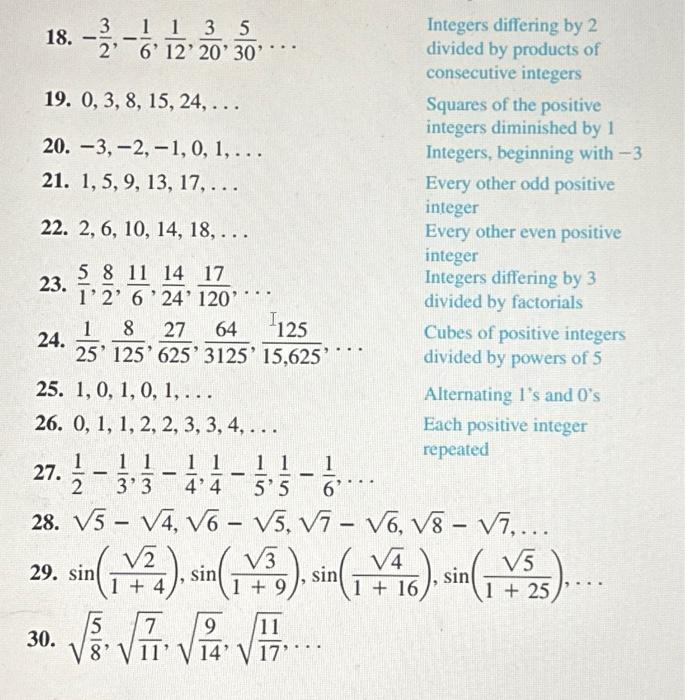 18. −3/2, −1/6, 1/12, 3/20, 5/30, . . .
Integers differing by 2
divided by products of
consecutive integers
19. 0, 3, 8, 15, 24, . . .
Squares of the positive
integers diminished by 1
20. −3, −2, −1, 0, 1, . . .
Integers, beginning with −3
21. 1, 5, 9, 13, 17, . . .
Every other odd positive
integer
22. 2, 6, 10, 14, 18, . . .
Every other even positive
integer
23. 5/1, 8/2, 11/6, 14/24, 17/120, . . .
Integers differing by 3
divided by factorials
24. 1/25, 8/125, 27/625, 64/3125, 125/15,625, . . .
Cubes of positive integers
divided by powers of 5
25. 1, 0, 1, 0, 1, . . .
Alternating 1’s and 0’s
26. 0, 1, 1, 2, 2, 3, 3, 4, . . .
Each positive integer
repeated
27. 1/2 − 1/3, 1/3 − 1/4, 1/4 − 1/5, 1/5 − 1/6, . . .
28. √5 − √4, √6 − √5, √7 − √6, √8 − √7, . . .
29. sin(√2/(1 + 4)), sin(√3/(1 + 9)), sin(√4/(1 + 16)), sin(√5/(1 + 25)), . . .
30. √(5/8), √(7/11), √(9/14), √(11/17), . . .